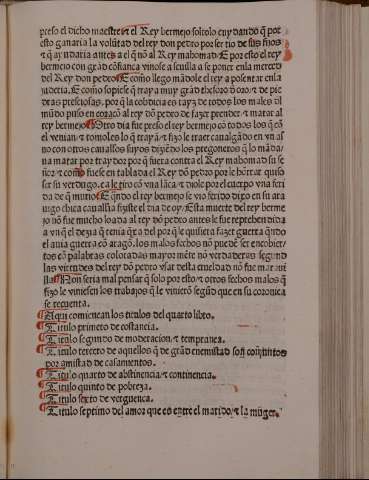 preso el dicho maestre ⁊ el Rey bermejo soltolo cuydando q̃ por
esto ganaria la volũtad del rey don pedro por ser tio de sus fijos
⁊ q̃ ayudaria antes a el q̃ nõ al Rey mahomad. E por esto el rey
bermejo con grãd cõfiança vinose a seuilla a se poner en la merced
del Rey don pedro. E como llego mãdole el rey a posentar en la
juderia. E como sopiese q̃ traya muy grãd thesoro d̃ oro ⁊ de pie
dras presciosas. por q̃ la cobdicia es rayz de todos los males del
mũdo puso en coraçõ al rey dõ pedro de fazer prender ⁊ matar al
rey bermejo. Otro dia fue preso el rey bermejo cõ todos los q̃ cõ
el venian ⁊ tomoles lo q̃ trayã ⁊ fizo le traer caualgãdo en vn as
no con otros caualleros suyos diziẽdo los pregoneros q̃ lo mãda-
ua matar por traydor por q̃ fuera contra el Rey mahomad su se
ñor ⁊ como fuese en tablada el Rey dõ pedro por le hõrrar quiso
ser su verdugo. ca le tiro cõ vna lãça ⁊ diole por el cuerpo vna feri
da de q̃ murio. E q̃ndo el rey bermejo se vio ferido dixo en su ara
uigo chica caualleria fiziste el dia de oy. Esta muerte del rey berme
jo nõ fue mucho loada al rey dõ pedro antes le fue reprehendida
a vn q̃ el dezia q̃ tenia q̃xa del por q̃ le quisiera fazer guerra q̃ndo
el auia guerra cõ aragõ. los malos fechos nõ puedẽ ser encobier/
tos cõ palabras coloradas mayormẽte nõ verdaderas segund
las virtudes del rey dõ pedro vsar desta crueldad nõ fue maraui
lla. Non seria mal pensar q̃ solo por esto ⁊ otros fechos malos q̃
fizo le viniesen los trabajos q̃ le vinierõ segũd que en su coronica
se recuenta.
Aqui comiençan los titulos del quarto libro.
Titulo primero de costancia.
Titulo segundo de moderacion ⁊ temprança.
Titulo tercero de aquellos q̃ de grãd enemistad son cõjuntos
por amistad de casamientos.
Titulo quarto de abstinencia ⁊ continencia.
Titulo quinto de pobreza.
Titulo sexto de verguença.
Titulo septimo del amor que es entre el marido ⁊ la muger.